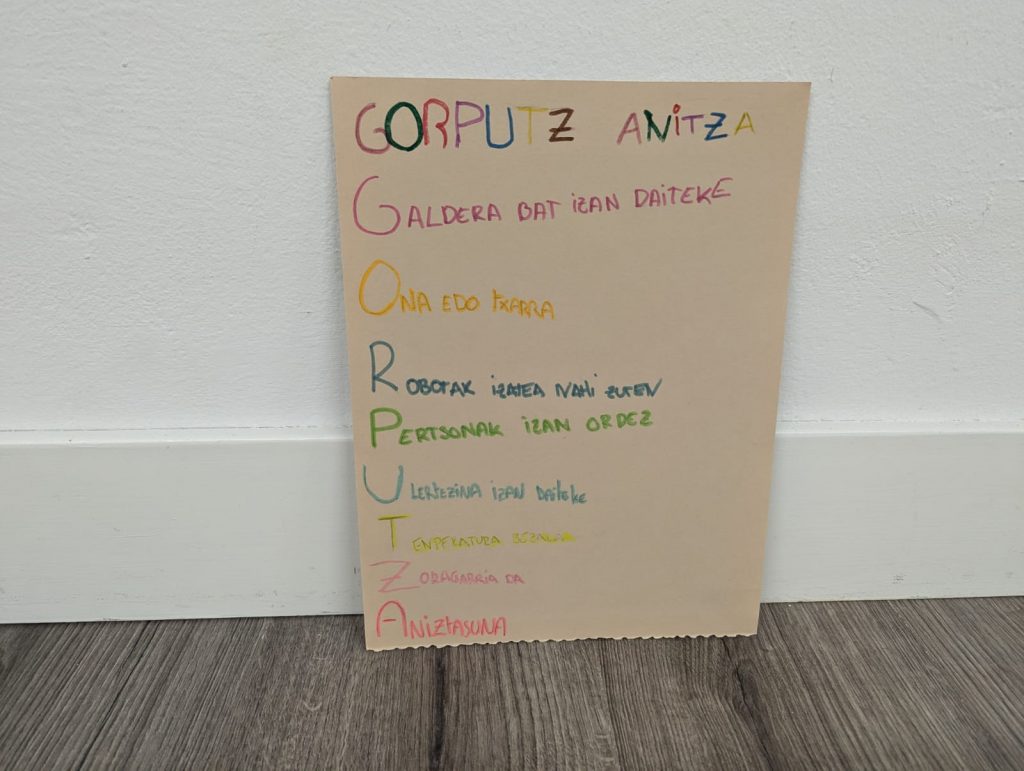 GORPUTZ ANiTZA
GALDERA BAT iZAN DAiTEKE
ONA EDO tXARRA
ROBOTAK iZATEA NAHi ZUTEN
PERTSONAK iZAN ORDEZ
ULERtEZiNA iZAN DAiteke
TENPERATURA BEZALA
ZORAGARRiA DA
ANiZtASUNA